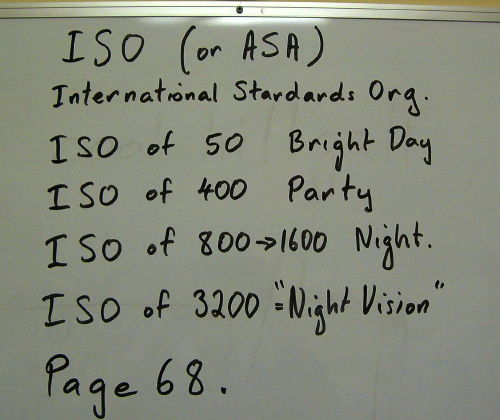 ISO (or ASA)
International Stardards Org.
ISO of 50 Bright Day
ISO of 400 Party
ISO of 800→1600 Night.
ISO of 3200 = "Night Vision"
Page 68.